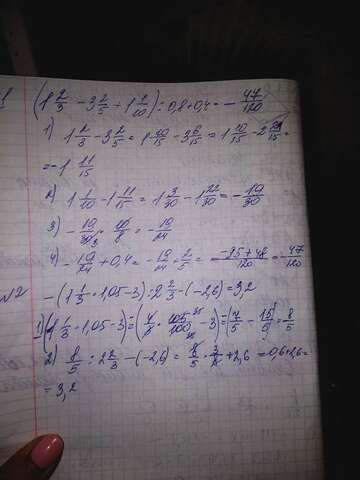 1 (1 2/3 - 3 2/5 + 1 1/10) : 0,8 + 0,4 = - 47/120
1) 1 2/3 - 3 2/5 = 1 10/15 - 3 6/15 = 1 10/15 - 2 21/15 =
= -1 11/15
2) 1 1/10 - 1 11/15 = 1 3/30 - 1 22/30 = - 19/30
3) - 19/30 · 10/8 = - 19/24
4) - 19/24 + 0,4 = - 19/24 + 2/5 = -95+48/120 = - 47/120
№2 - (1 1/3 · 1,05 - 3) : 2 2/3 - (-2,6) = 3,2
1) (1 1/3 · 1,05 - 3) = (4/3 · 105/100 - 3) = (7/5 - 15/5) = 8/5
2) 8/5 : 2 2/3 - (-2,6) = 8/5 · 3/8 + 2,6 = 0,6+2,6=
= 3,2